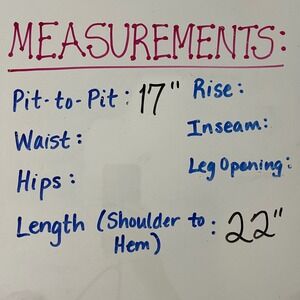 MEASUREMENTS:
Pit-to-Pit: 17"
Rise:
Waist:
Inseam:
Hips:
Leg Opening:
Length (Shoulder to Hem): 22"